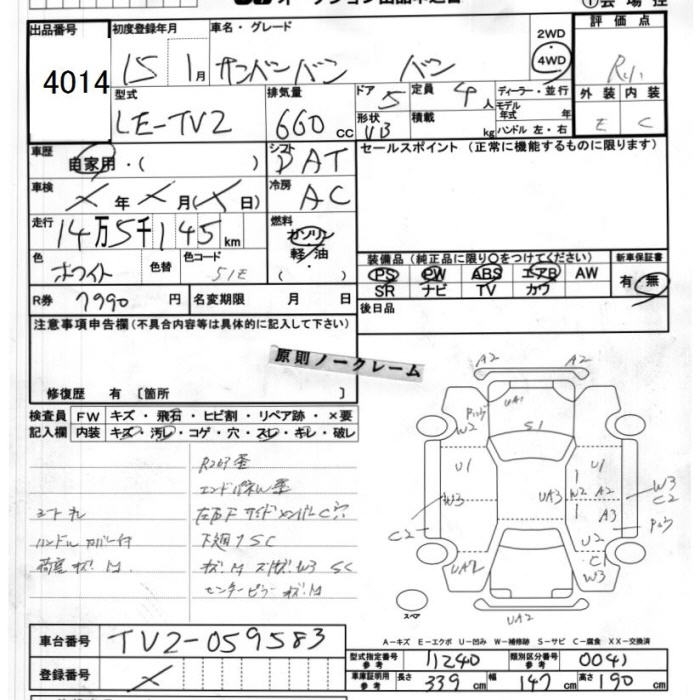 出品番号 初度登録年月 車名・グレード 2WD 評価点
4014 15 1月 サンバーバン バン 4WD
型式 排気量 ドア 定員 ディーラー・並行 外装 内装
LE-TV2 660cc 5 4人 モデル年式 年 E C
形状 VB 積載 kg ハンドル 左・右
車歴 自家用・( ) シフト DAT セールスポイント (正常に機能するものに限ります)
車検 X年X月(X日) 冷房 AC
走行 14万5千145km 燃料 ガソリン
軽油
( )
色 ホワイト 色替 色コード 51E
装備品 (純正品に限り○をつけてください) 新車保証書
PS PW ABS エアB AW 有・無
SR ナビ TV カワ
R券 7990円 名変期限 月 日 後日品
注意事項申告欄(不具合内容等は具体的に記入して下さい)
原則ノークレーム
修復歴 有 〔箇所 〕
検査員 FW キズ・飛石・ヒビ割・リペア跡・×要
記入欄 内装 キズ・汚レ・コゲ・穴・スレ・キレ・破レ
シートキレ
ハンドルカバー付
下廻リSC
A2 A2
UA1
W2 S1
U1 U1
W3 UA3 W2 A2 W3
C2
C2 A3
U2
UA2 C1
W3
スペア UA2
A-キズ E-エクボ U-凹み W-補修跡 S-サビ C-腐食 XX-交換済
車台番号 TV2-059583
型式指定番号 参考 11240 類別区分番号 参考 0041
登録番号 X
車庫証明用 参考 長さ 339cm 幅 147cm 高さ 190cm